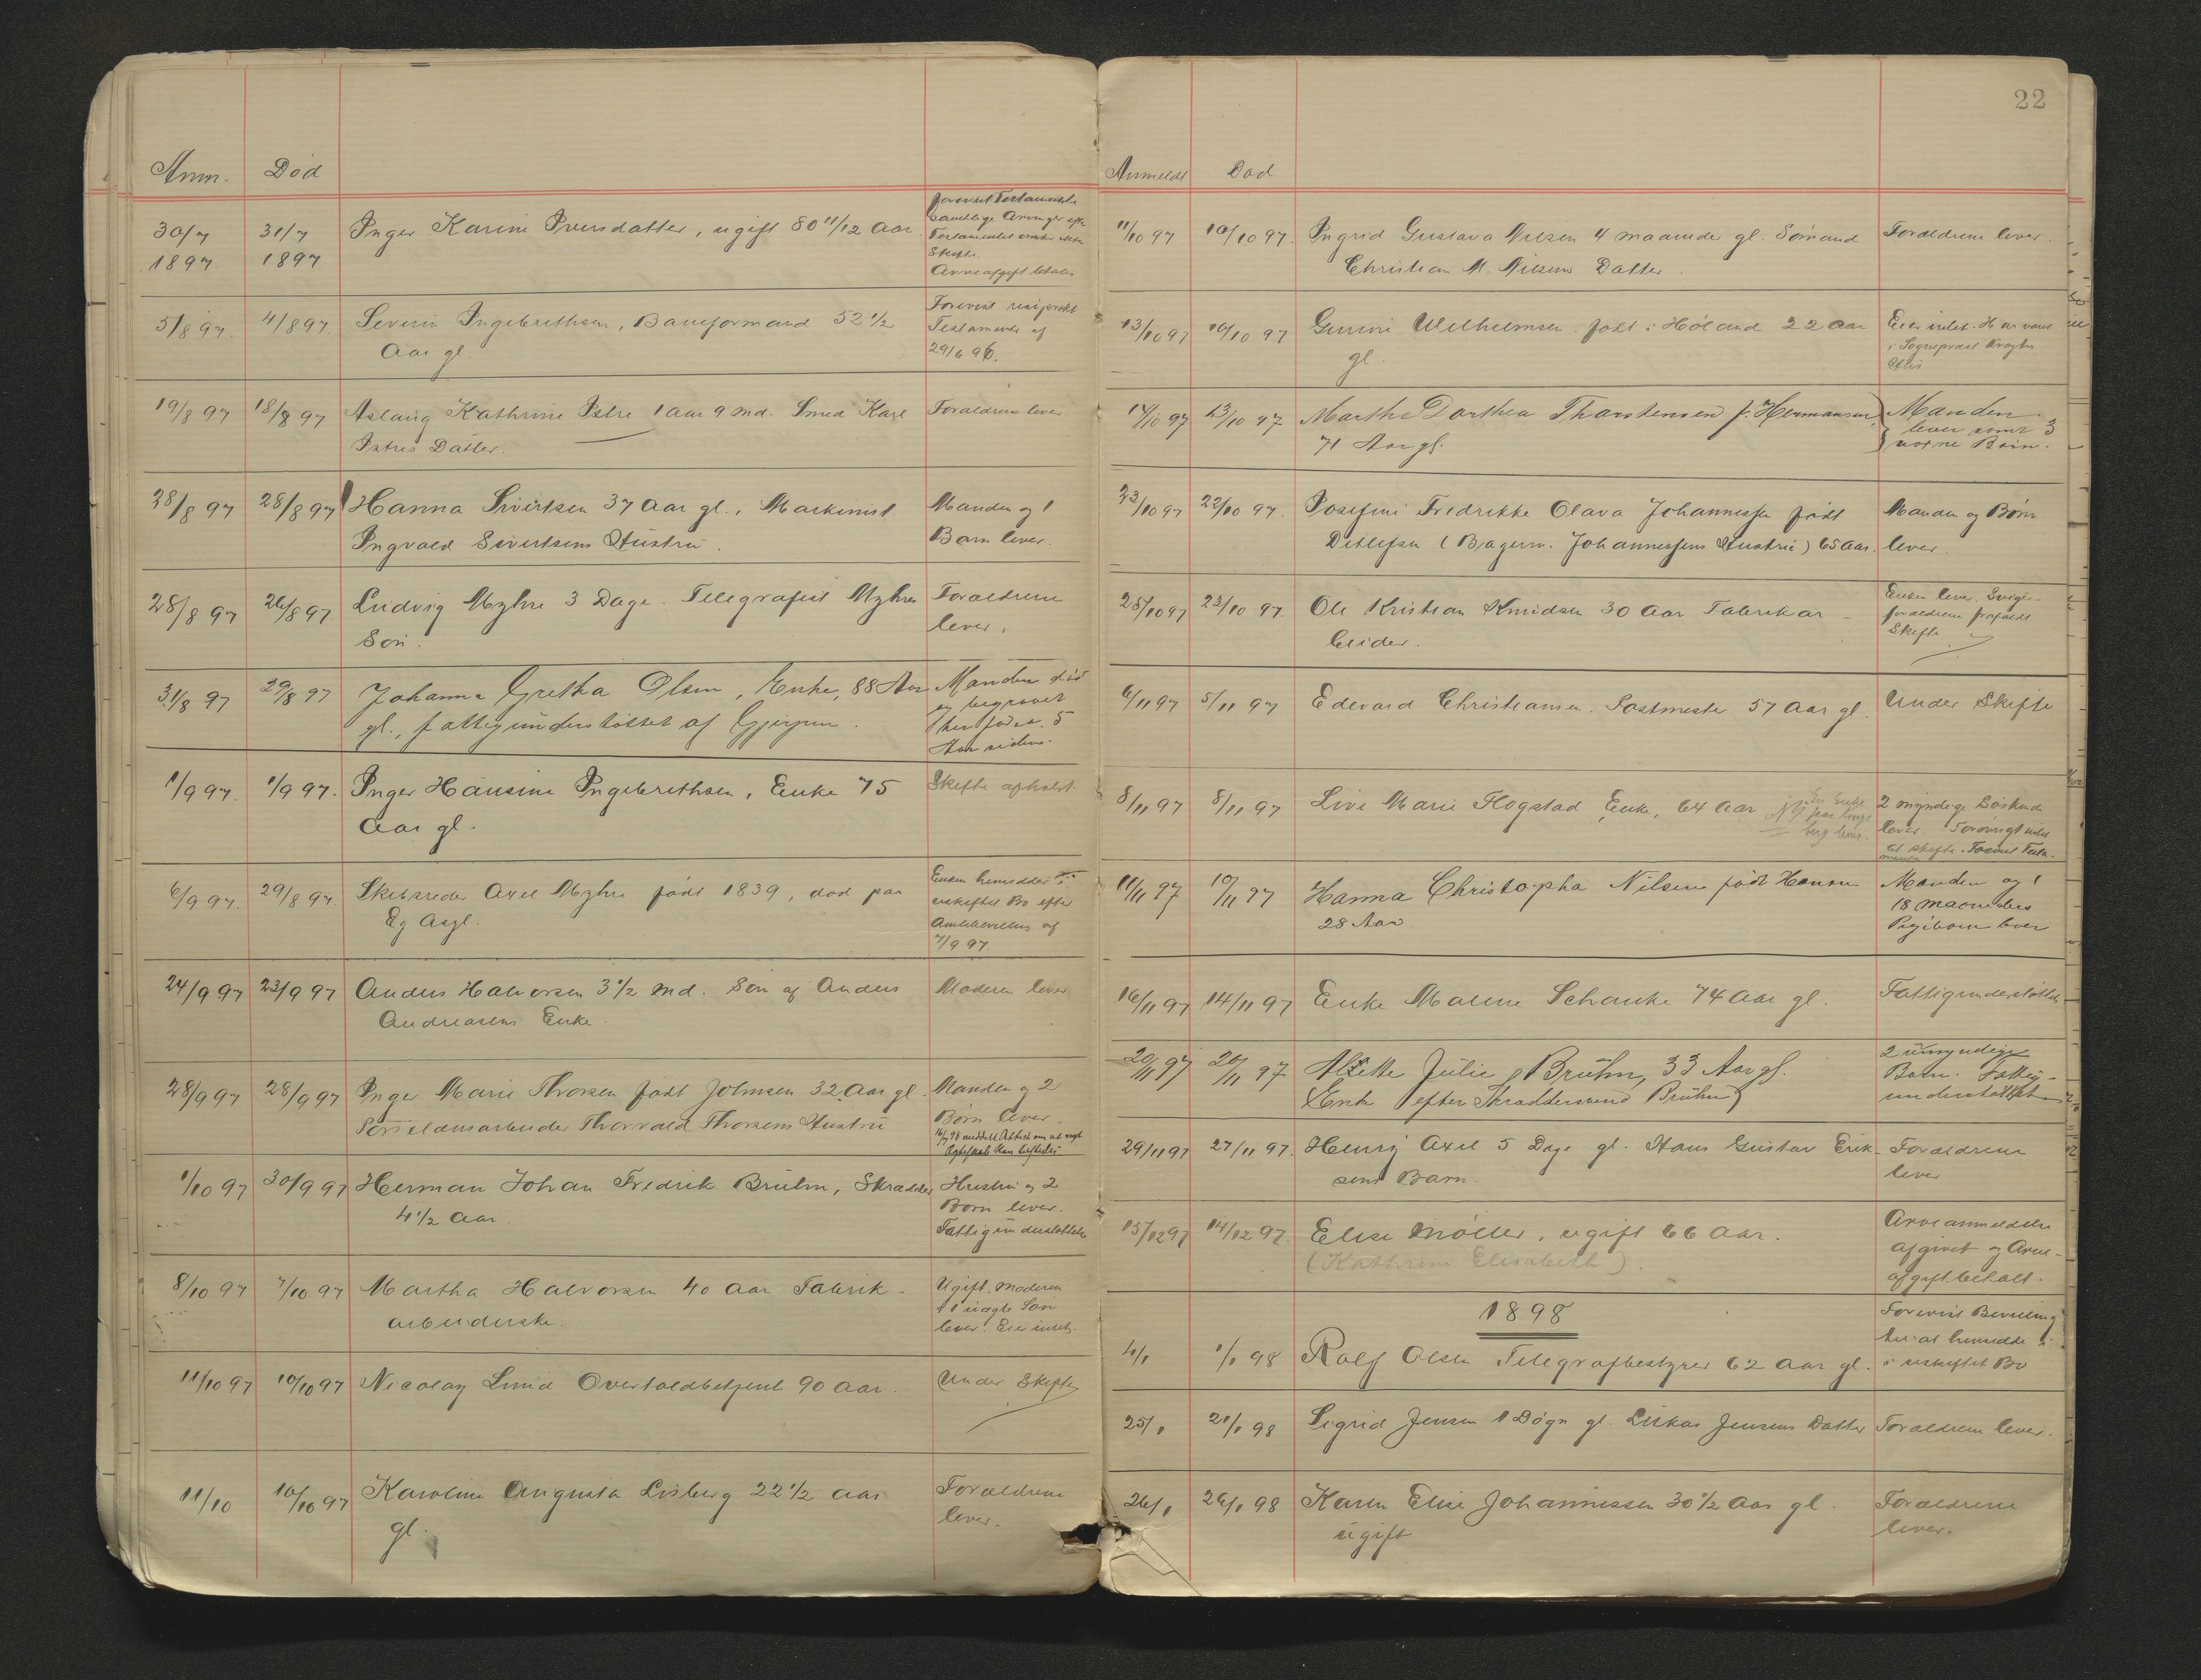 Anm. Död
30/7 1897 31/7 1897 Inger Karine Iversdatter, ugift 80 11/12 Aar.
Forevist Testamente
samtlige Arvinger efter
Testamentet
Skifte.
Arveafgift betales
5/8 97. 4/8 97. Severin Ingebrethsen, Baneformand 52 1/2
Aar gl.
Forevist resiprokt
Testamente af
29/6 96.
19/8 97 18/8 97 Aslaug Kathrine Istre 1 Aar 9 md. Smed Karl
Istres Datter.
Forældrene lever
28/8 97 28/8 97 Hanna Sivertsen 37 Aar gl., Maskinist
Ingvald Sivertsens Hustru.
Manden og 1
Barn lever.
28/8 97 26/8 97 Ludvig Myhre 3 Dage. Telegrafist Myhres
Sön.
Forældrene
lever.
31/8 97 29/8 97 Johanne Gretha Olsen, Enke, 88 Aar
gl., fattigunderstöttet af Gjerpen.
Manden död
og begravet
her for ca. 5
Aar siden.
1/9 97. 1/9 97. Inger Hansine Ingebrethsen, Enke 75
Aar gl.
Skifte afholdt
6/9 97. 29/8 97. Skibsreder Axel Myhre födt 1839, död paa
Eg Asyl.
Enken hensidder i
uskiftet Bo efter
Amtsbevilling af
7/9 97.
24/9 97 23/9 97 Anders Halvorsen 3 1/2 md. Sön af Anders
Andreasens Enke.
Moderen lever
28/9 97 28/9 97 Inger Marie Thorsen født Johnsen 32 Aar gl
Thorvald Thorsens Hustru
Manden og 2
Börn lever.
16/7 98 meddelt Attest om at nyt
Ægteskab kan stiftes
1/10 97 30/9 97 Herman Johan Fredrik Brühn, Skrædder
41/2 Aar.
Hustru og 2
Börn lever.
Fattigunderstöttelse
8/10 97 7/10 97 Martha Halvorsen 40 Aar Fabrik-
arbeiderske.
Ugift. Moderen
+ 1 uægte Sön
lever. Eier intet.
11/10 97 10/10 97 Nicolay Lund Overtoldbetjent 90 Aar.
Under Skifte
11/10 10/10 97 Karoline Augusta Lisberg 22 1/2 Aar
gl.
Forældrene
lever.
22
Anmeldt Död
11/10 97 10/10 97. Ingrid Gustava Nilsen 4 maaneder gl. Sömand
Christian M. Nilsens Datter.
Forældrene lever.
13/10 97 10/10 97 Gunine Wilhelmsen. født i Höland 22 Aar
gl.
Eier intet. Har været
i Sogneprest Kroghs
Hus
14/10 97 13/10 97 Marthe Dorthea Thorstensen f. Hermansen,
71 Aar gl.
Manden
lever samt 3
voxne Börn.
23/10 97 22/10 97. Josefine Fredrikke Olava Johannessen født
Ditlefsen (Bagerm. Johannessens Hustru) 65 Aar.
Manden og Börn
lever.
25/10 97 23/10 97. Ole Kristian Knudsen 30 Aar Fabrikar-
beider.
Enken lever. Svige-
forældrene frafaldt
Skifte
6/11 97 5/11 97 Edvard Christiansen. Postmester 57 Aar gl.
Under Skifte
8/11 97 8/11 97 Live Marie Flogstad Enke, 64 Aar
2 myndige Söskende
lever. Forövrigt intet
at skifte. Forevist Testa-
mente
11/11 97 10/11 97 Hanna Christopha Nilsen født Hansen
28 Aar
Manden og 1
18 maaneders
Pigebarn lever
16/11 97 14/11 97 Enke Malene Schanke 74 Aar gl.
Fattigunderstöttet
20/11 97 20/11 97 Alette Julie Brühn, 33 Aar gl.
Enke efter Skræddersvend Brühn
2 umyndige
Barn. Fattig-
understöttet
29/11 97 27/11 97. Henry Axel 5 Dage gl. Hans Gustav Erik-
sens Barn.
Forældrene
lever
15/12 97 14/12 97. Elise Möller, ugift 66 Aar.
(Kathrine Elisabeth).
Arveanmeldelse
afgivet og Arve-
afgift betalt.
1898
4/1 1/1 98 Rolf Olsen Telegrafbestyrer 62 Aar gl.
Forevist Bevilling
til at hensidde
i uskiftet Bo
25/1 21/1 98 Sigrid Jensen 1 Dögn gl. Lukas Jensens Datter
Forældrene lever.
26/1 26/1 98 Karen Elise Johannessen 30 1/2 Aar gl.
ugift
Forældrene
lever.